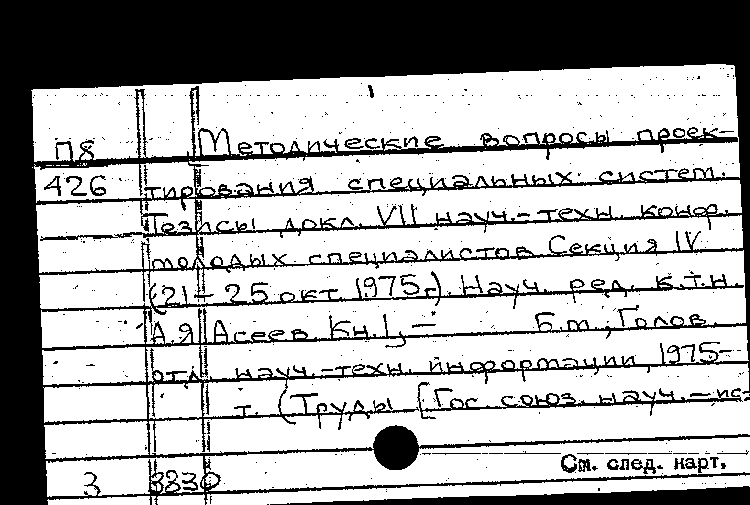 П8 Методические вопросы проек-
426 тирования специальных систем.
Тезисы докл. VII науч.-техн. конф.
молодых специалистов Секция IV
(21-25 окт. 1975г.) Науч. ред. к.т.н.
А.Я Асеев Кн. I, - Б.м., Голов.
отд. науч.-техн. информации, 1975-
т. (Труды [Гос. союз. науч.-ис-
См. след. карт.
3 3830